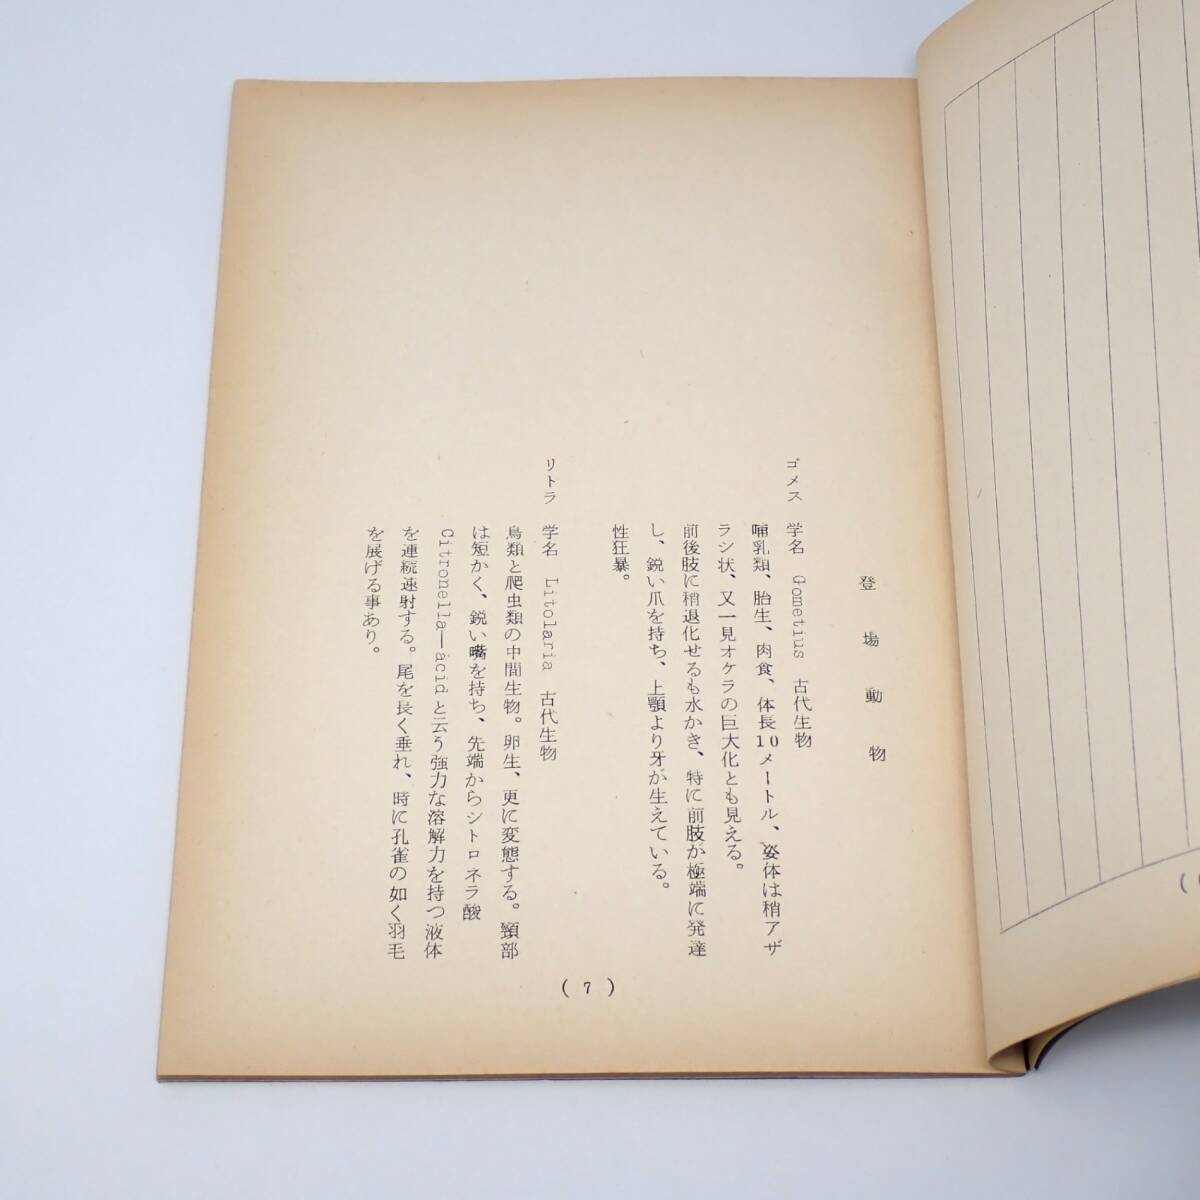 登場動物
ゴメス 学名 Gometius 古代生物
哺乳類、胎生、肉食、体長10メートル、姿体は稍アザ
ラシ状、又一見オケラの巨大化とも見える。
前後肢に稍退化せるも水かき、特に前肢が極端に発達
し、鋭い爪を持ち、上顎より牙が生えている。
性狂暴。
リトラ 学名 Litolaria 古代生物
鳥類と爬虫類の中間生物。卵生、更に変態する。頸部
は短かく、鋭い嘴を持ち、先端からシトロネラ酸
Citronella—acidと云う強力な溶解力を持つ液体
を連続速射する。尾を長く垂れ、時に孔雀の如く羽毛
を展げる事あり。
(7)